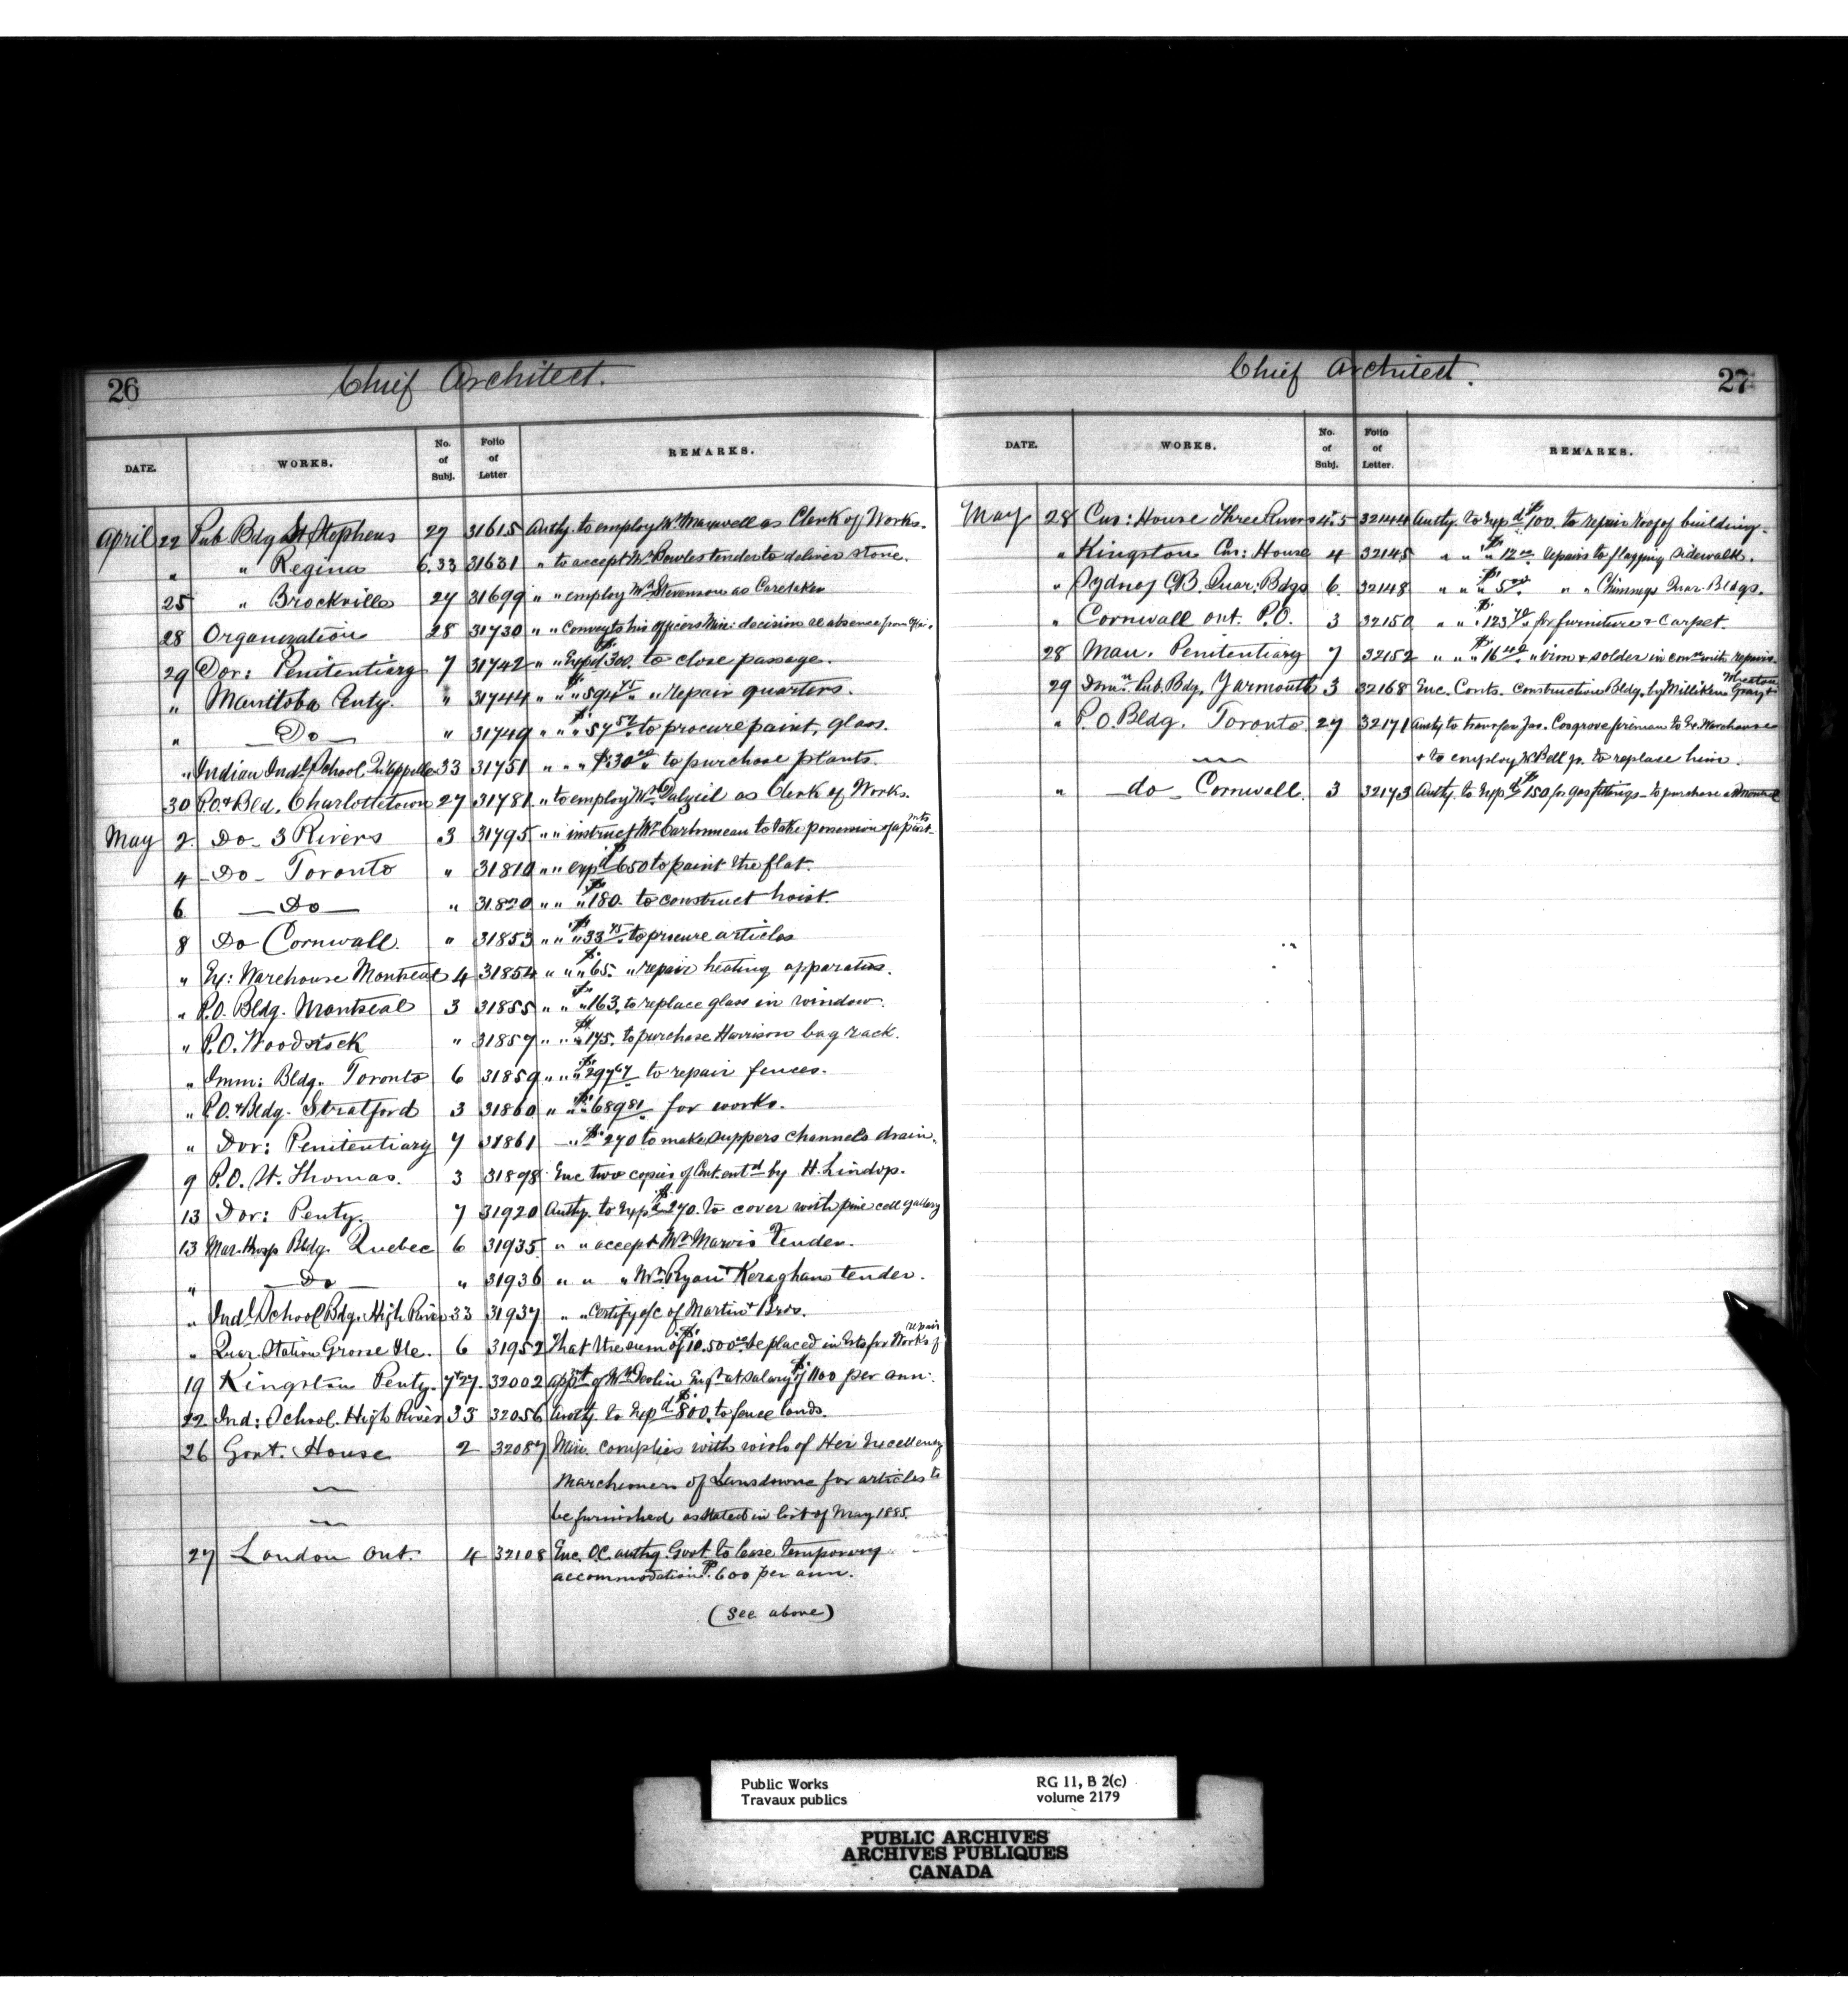 26
Chief Architect.
DATE. WORKS. No. of Subj. Folio of Letter REMARKS.
April 22 Pub. Bdg St Stephens 27 31615 Authy. to employ Mr. Maxwell as Clerk of Works.
" " Regina 6.33 31631 " to accept Mr Bowles tender to deliver stone.
25 " Brockville 27 31699 " " employ Mr. Stevenson as Caretaker
28 Organization 28 31730 " " Convey to his officers Min: decision re absence from
29 Dor: Penitentiary 7 31742 " " Expd $300. to close passage.
" Manitoba Penty. " 31744 " " " $594 75 " " repair quarters.
" Do " 31749 " " " $57 57 to procure paint, glass.
" Indian Indl. School Qu'Appelle 33 31751 " " " $30 00 " to purchase plants.
30 P.O. & Bld. Charlottetown 27 31781 " to employ Mr. Dalziel as Clerk of Works.
May 2. Do - 3 Rivers 3 31795 " " instruct Mr Carbonneau to take possession of apartnts
4 Do - Toronto " 31810 " " expd $650 to paint the flat.
6 Do " 31820 " " " $180. to construct hoist.
8 Do Cornwall. " 31853 " " " $33 75 to procure articles
" Ex: Warehouse Montreal 4 31854 " " " $65. " repair heating apparatus.
" P.O. Bldg. Montreal 3 31855 " " " $163. to replace glass in window.
" P.O. Woodstock " 31857 " " " $175. to purchase Harrison bag rack.
" Imm: Bldg. Toronto 6 31859 " " " $297 67 to repair fences.
" P.O. & Bldg. Stratford 3 31860 " " " $689 81 for works.
" Dor: Penitentiary 7 31861 " $270 to make channels drain.
9 P.O. St. Thomas. 3 31898 Enc two copies of Cont. entd by H. Lindop.
13 Dor: Penty. 7 31920 Authy. to Expd $270. to cover with pine cell gallery
13 Mar. Hosp Bldg. Quebec 6 31935 " " accept Mr. Tender.
" Do " 31936 " " " Mr. Ryan & Keraghan tender.
" Indl. School Bdg. High River 33 31937 " " Certify a/c of Martin & Bros.
" Quar. Station Grosse Ile. 6 31952 That the sum of $10.500 00 be placed in Ests for Works of repair
19 Kingston Penty. 7 & 27. 32002 appnt of Mr Engr. at salary of $1100 per ann.
22 Ind: School. High River 33 32056 Authy. to Expd $800. to fence lands.
26 Govt. House 2 32087 Min. complies with wish of Her Excellency
Marchioness of Lansdowne for articles to
be furnished as stated in list of May 1885.
27 London Ont. 4 32108 Enc. O.C. authg. Govt. to lease temporary
accommodation $600 per ann.
(See above)
27
Chief Architect.
DATE. WORKS. No. of Subj. Folio of Letter. REMARKS.
May 28 Cus: House Three Rivers 4.5 32144 Authy. to Expd $100. to repair roof of building.
" Kingston Cus: House 4 32145 " " " $12 00 repairs to flagging sidewalk.
" Sydney C.B. Quar: Bdgs 6. 32148 " " " $5 " " Chimneys Quar. Bldgs.
" Cornwall Ont. P.O. 3 32150 " " " $123 70 " for furniture & Carpet.
28 Man. Penitentiary 7 32152 " " " $16 40 " " iron & solder in conn with repairs.
29 Domn. Pub. Bdg. Yarmouth 3 32168 Enc. Conts. construction Bldg. by Milliken Gray &
" P.O. Bldg. Toronto. 27 32171 Authy to transfer Jas. Cosgrove fireman to Ex. Warehouse
& to employ W Bell jr. to replace him.
" do - Cornwall. 3 32173 Authy. to Expd $150 for gas fittings - to purchase at Montreal
Public Works
Travaux publics
RG 11, B 2(c)
volume 2179
PUBLIC ARCHIVES
ARCHIVES PUBLIQUES
CANADA